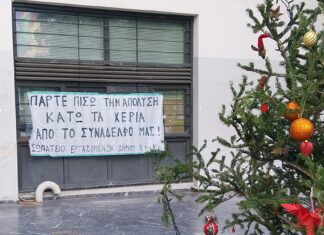 ΠΑΡΤΕ ΠΙΣΩ ΤΗΝ ΑΠΟΛΥΣΗ
ΚΑΤΩ ΤΑ ΧΕΡΙΑ
ΑΠΟ ΤΟ ΣΥΝΑΔΕΛΦΟ ΜΑΣ!
ΣΩΜΑΤΕΙΟ ΕΡΓΑΖΟΜΕΝΩΝ ΔΗΜΟΥ